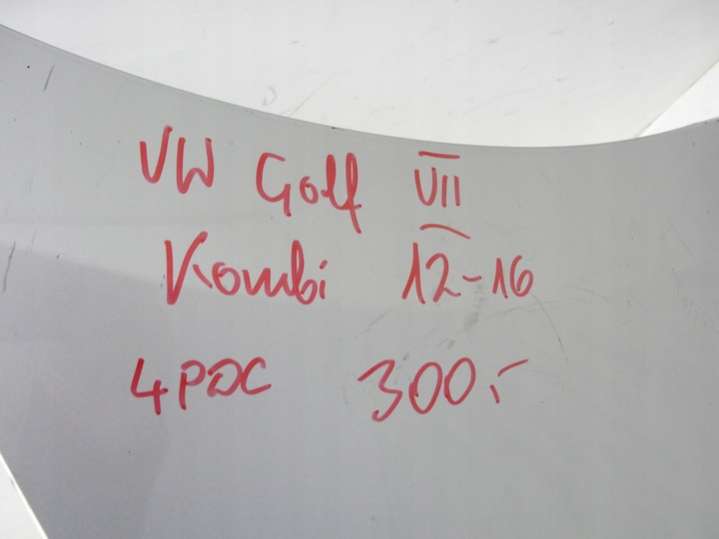 VW Golf VII
Kombi 12-16
4PDC 300,-